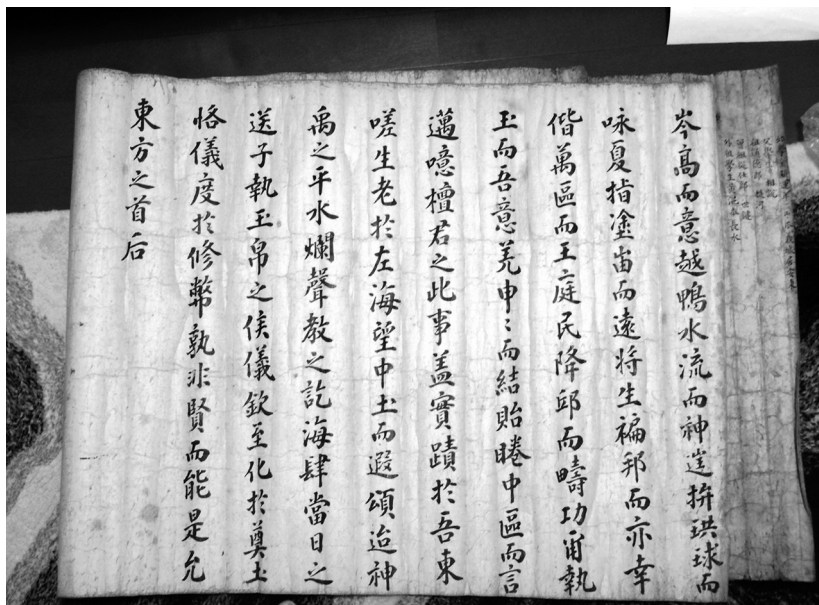 岑高而意越鴨水流而神逞拚珙球而
咏夏指塗甾而遠將生褊邦而亦幸
偕萬區而王庭民降邱而疇功甫執
玉而吾意羌申〻而結貽睠中區而言
邁噫檀君之此事盖實蹟於吾東
嗟生老於左海望中土而遐頌迨神
禹之平水爛聲教之訖海肆當日之
送子執玉帛之侯儀欽至化於奠土
恪儀度於修幣孰非賢而能是允
東方之首后